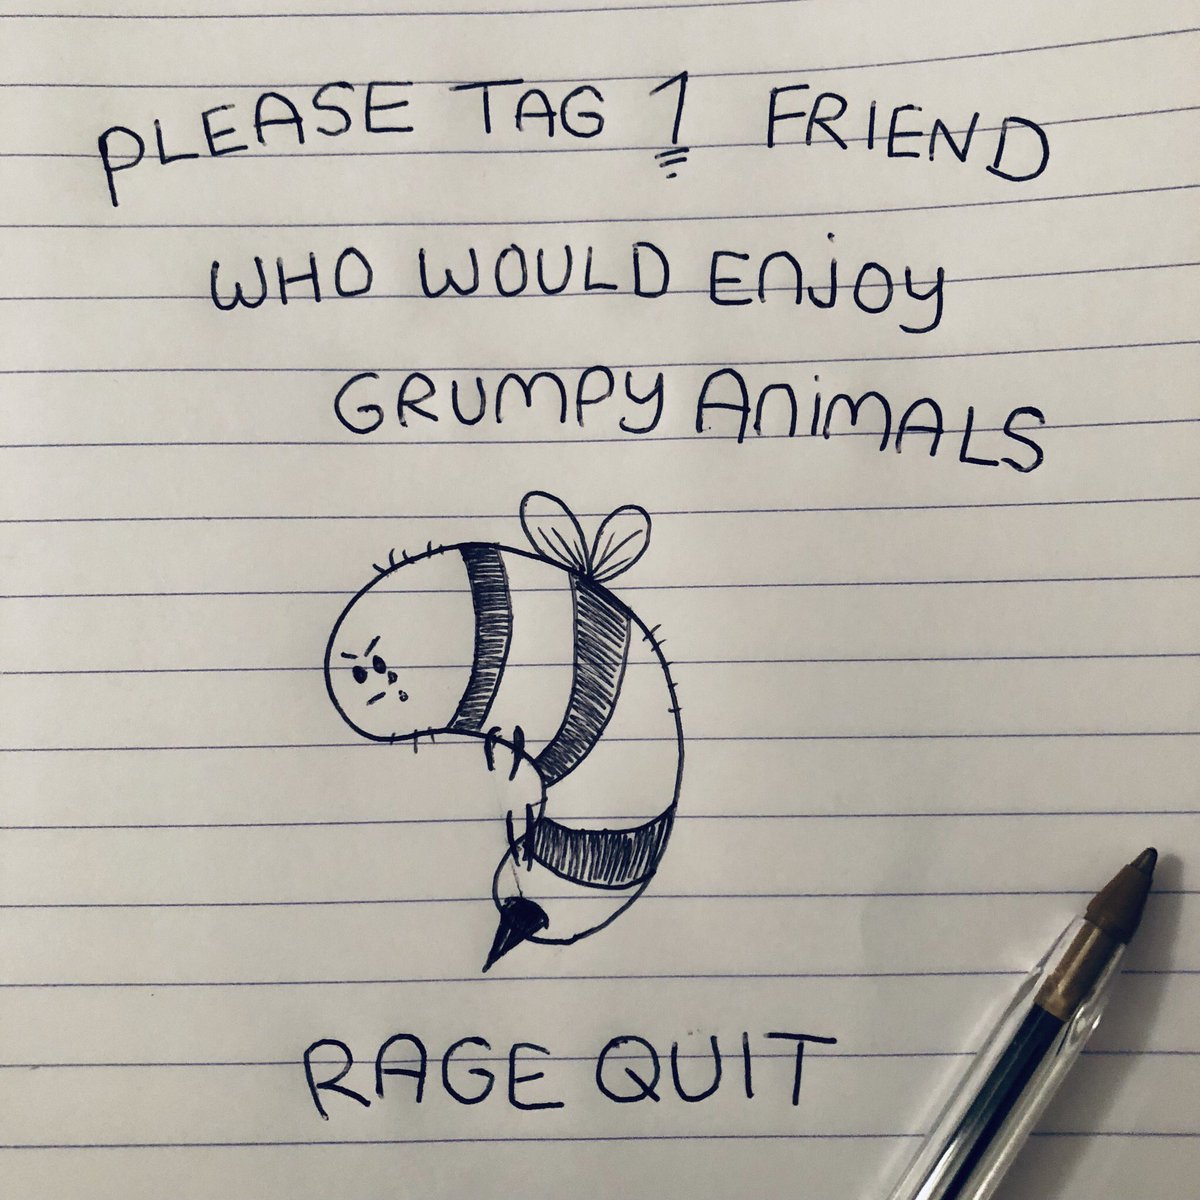 PLEASE TAG 1 FRIEND
WHO WOULD ENJOY
GRUMPY ANIMALS
RAGE QUIT